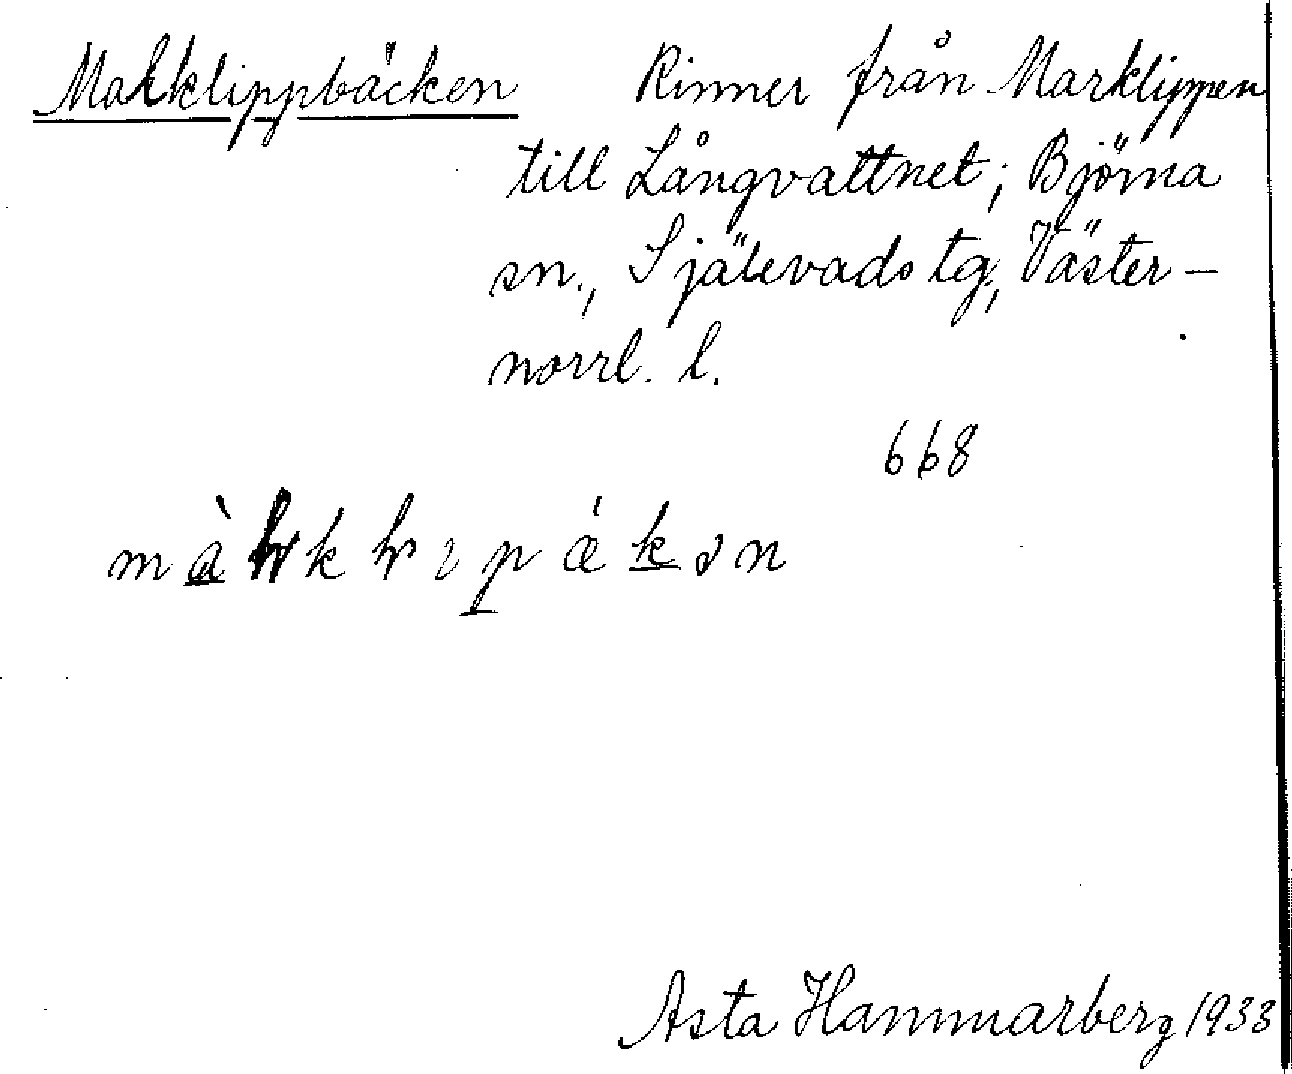 Marklippbäcken Rinner från Marklippen
till Långvattnet; Björna
sn., Själevads tg, Väster-
norrl. l.
668
Asta Hammarberg 1933